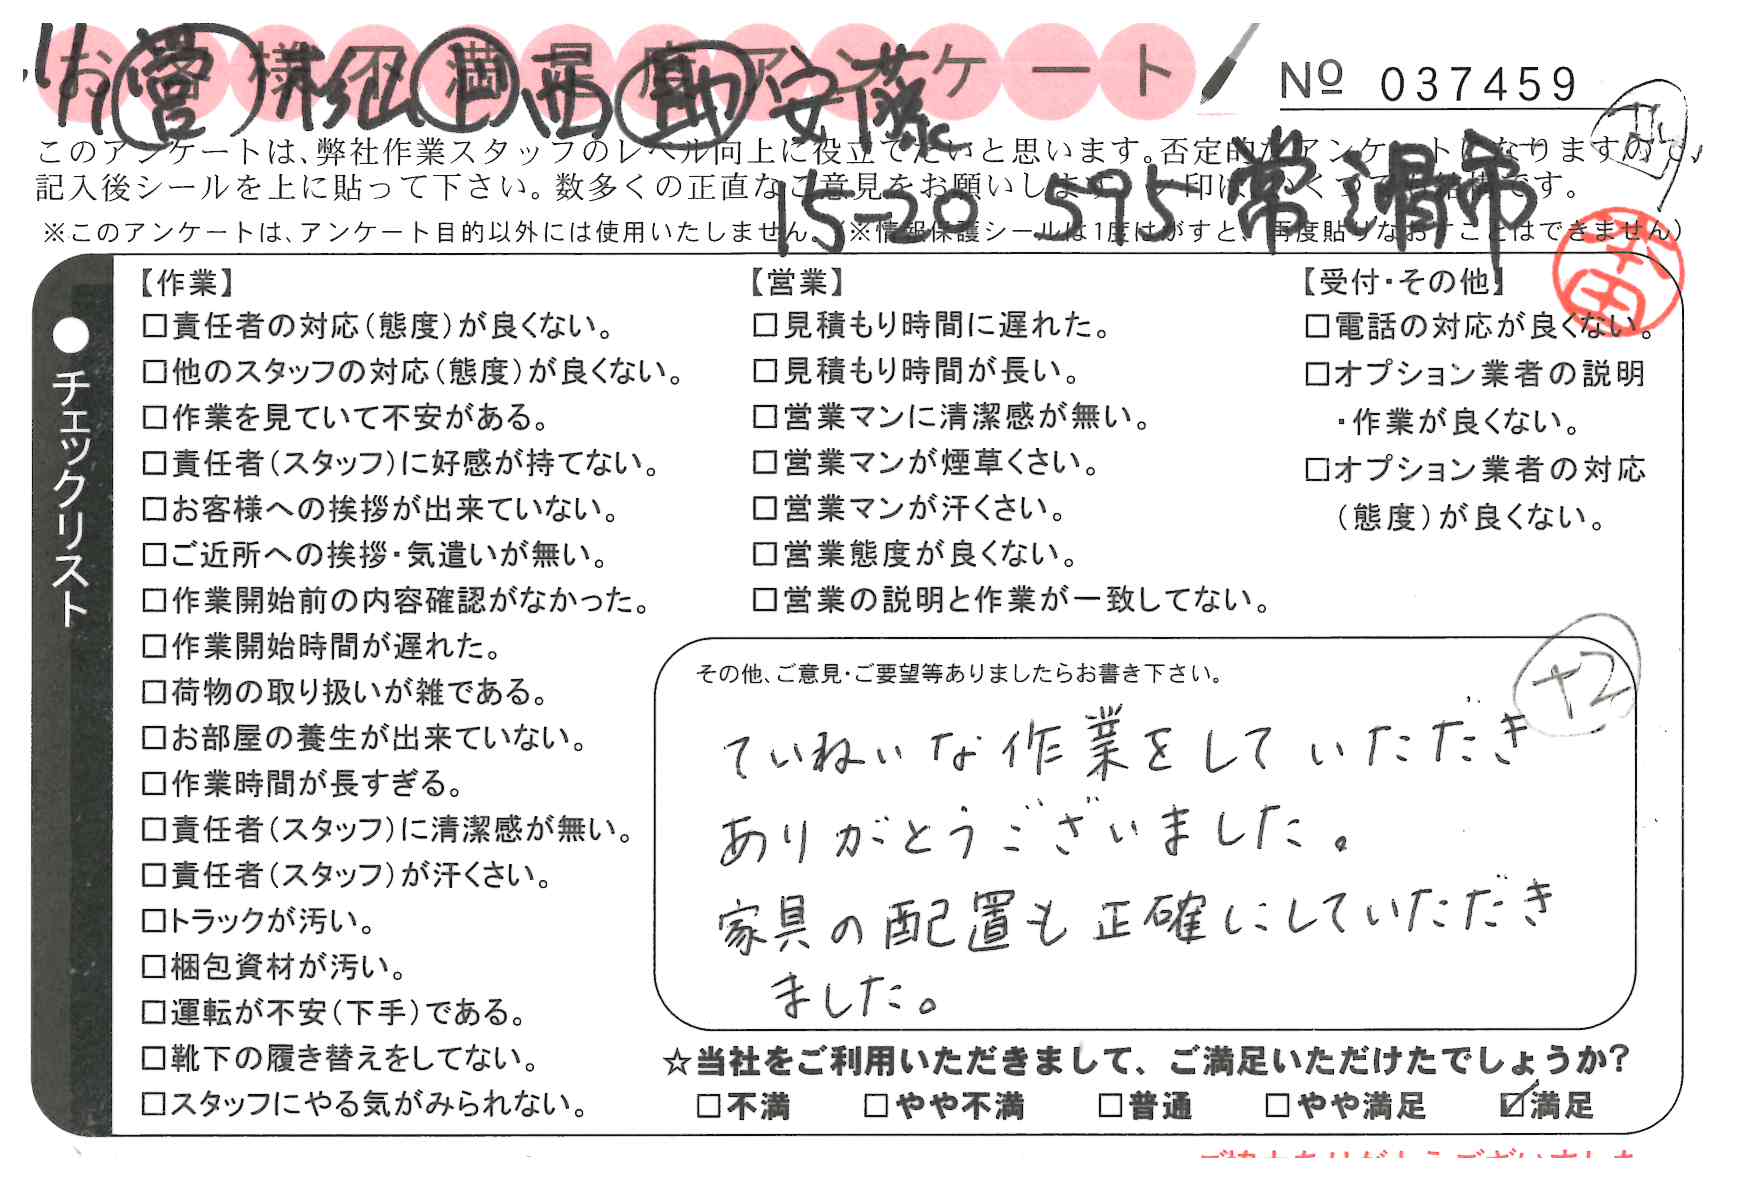 お客様不満足度アンケート
№ 037459
11/11 営 松 西 助 安藤
15-20 595 常滑市
このアンケートは、弊社作業スタッフのレベル向上に役立てたいと思います。否定的なアンケートになりますので、
記入後シールを上に貼って下さい。数多くの正直なご意見をお願いします。
※このアンケートは、アンケート目的以外には使用いたしません。(※情報保護シールは1度はがすと、再度貼りなおすことはできません)
●チェックリスト
【作業】
□責任者の対応(態度)が良くない。
□他のスタッフの対応(態度)が良くない。
□作業を見ていて不安がある。
□責任者(スタッフ)に好感が持てない。
□お客様への挨拶が出来ていない。
□ご近所への挨拶・気遣いが無い。
□作業開始前の内容確認がなかった。
□作業開始時間が遅れた。
□荷物の取り扱いが雑である。
□お部屋の養生が出来ていない。
□作業時間が長すぎる。
□責任者(スタッフ)に清潔感が無い。
□責任者(スタッフ)が汗くさい。
□トラックが汚い。
□梱包資材が汚い。
□運転が不安(下手)である。
□靴下の履き替えをしてない。
□スタッフにやる気がみられない。
【営業】
□見積もり時間に遅れた。
□見積もり時間が長い。
□営業マンに清潔感が無い。
□営業マンが煙草くさい。
□営業マンが汗くさい。
□営業態度が良くない。
□営業の説明と作業が一致してない。
【受付・その他】
□電話の対応が良くない。
□オプション業者の説明
・作業が良くない。
□オプション業者の対応
(態度)が良くない。
その他、ご意見・ご要望等ありましたらお書き下さい。
+2
ていねいな作業をしていただき
ありがとうございました。
家具の配置も正確にしていただき
ました。
☆当社をご利用いただきまして、ご満足いただけたでしょうか?
□不満 □やや不満 □普通 □やや満足 ☑満足
ご協力ありがとうございました